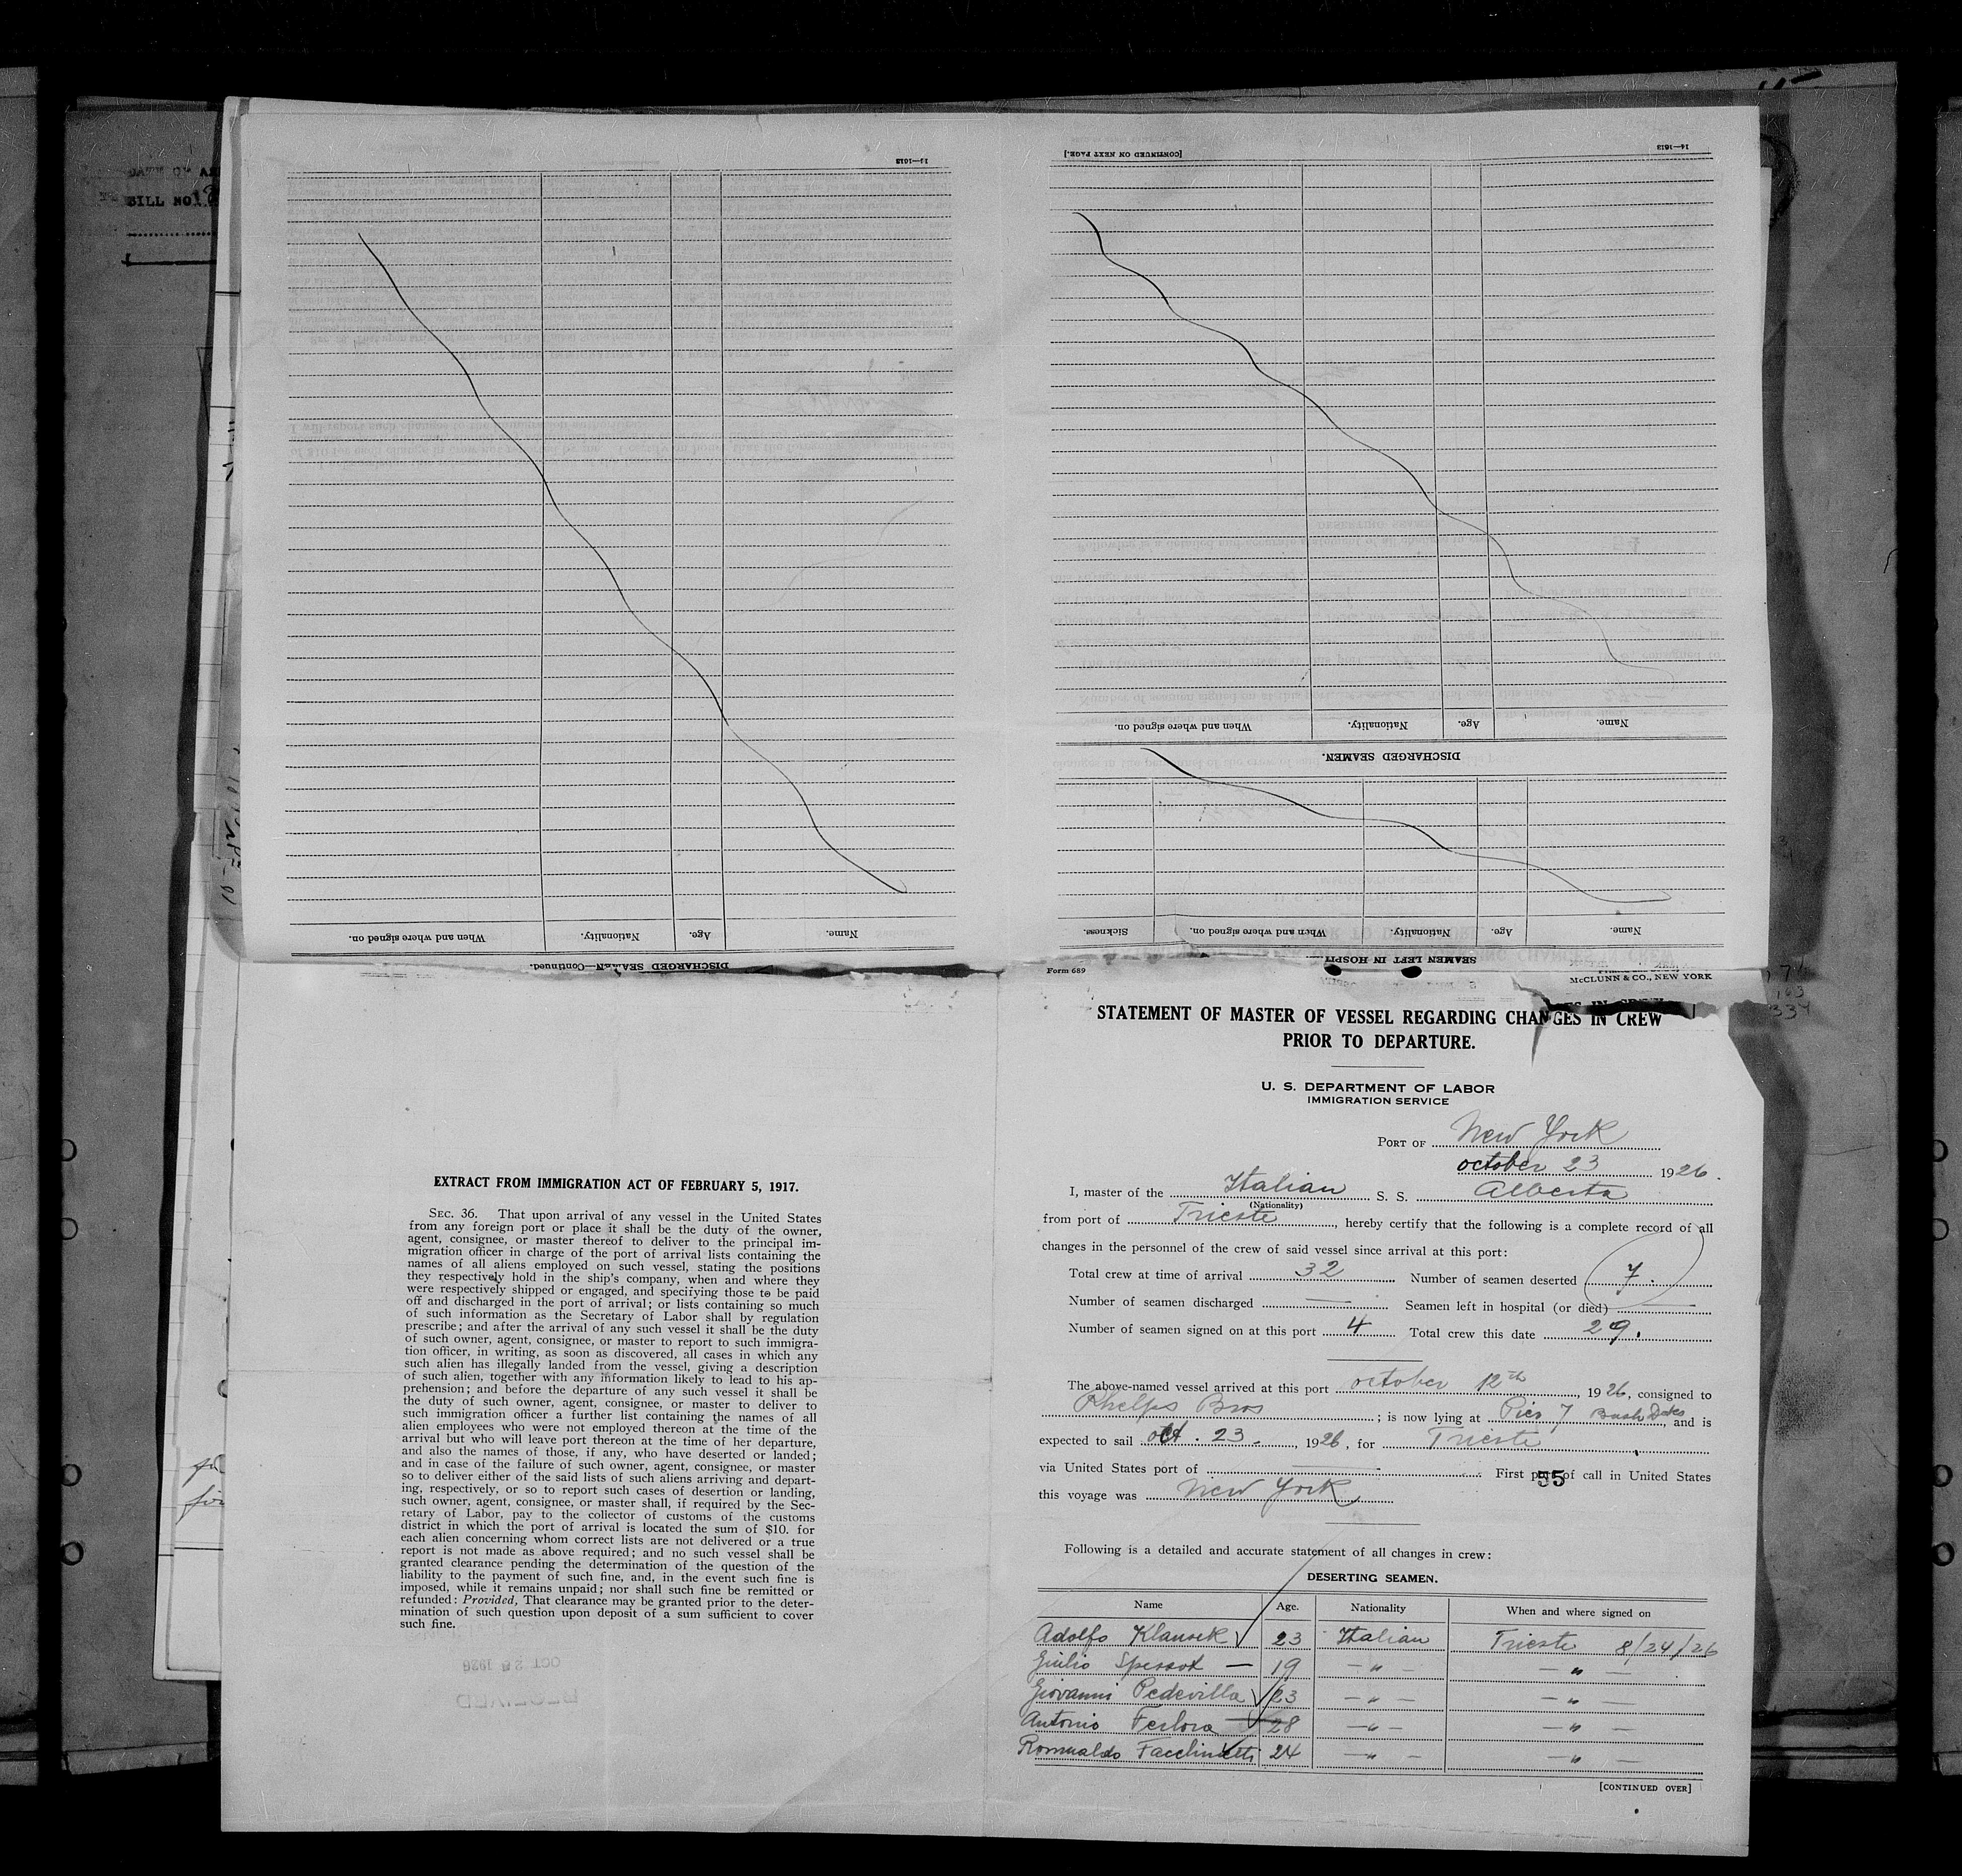 DATE OF AR
BILL NO.
[CONTINUED ON NEXT PAGE.]
14—1613
14—1613
Name.
Age.
Nationality.
When and where signed on.
DISCHARGED SEAMEN.
Name.
Age.
Nationality.
When and where signed on.
Sickness.
SEAMEN LEFT IN HOSPIT
Name.
Age.
Nationality.
When and where signed on.
DISCHARGED SEAMEN—Continued.
EXTRACT FROM IMMIGRATION ACT OF FEBRUARY 5, 1917.
SEC. 36. That upon arrival of any vessel in the United States
from any foreign port or place it shall be the duty of the owner,
agent, consignee, or master thereof to deliver to the principal im-
migration officer in charge of the port of arrival lists containing the
names of all aliens employed on such vessel, stating the positions
they respectively hold in the ship's company, when and where they
were respectively shipped or engaged, and specifying those to be paid
off and discharged in the port of arrival; or lists containing so much
of such information as the Secretary of Labor shall by regulation
prescribe; and after the arrival of any such vessel it shall be the duty
of such owner, agent, consignee, or master to report to such immigra-
tion officer, in writing, as soon as discovered, all cases in which any
such alien has illegally landed from the vessel, giving a description
of such alien, together with any information likely to lead to his ap-
prehension; and before the departure of any such vessel it shall be
the duty of such owner, agent, consignee, or master to deliver to
such immigration officer a further list containing the names of all
alien employees who were not employed thereon at the time of the
arrival but who will leave port thereon at the time of her departure,
and also the names of those, if any, who have deserted or landed;
and in case of the failure of such owner, agent, consignee, or master
so to deliver either of the said lists of such aliens arriving and depart-
ing, respectively, or so to report such cases of desertion or landing,
such owner, agent, consignee, or master shall, if required by the Sec-
retary of Labor, pay to the collector of customs of the customs
district in which the port of arrival is located the sum of $10. for
each alien concerning whom correct lists are not delivered or a true
report is not made as above required; and no such vessel shall be
granted clearance pending the determination of the question of the
liability to the payment of such fine, and, in the event such fine is
imposed, while it remains unpaid; nor shall such fine be remitted or
refunded: Provided, That clearance may be granted prior to the deter-
mination of such question upon deposit of a sum sufficient to cover
such fine.
Form 689
McCLUNN & CO., NEW YORK
STATEMENT OF MASTER OF VESSEL REGARDING CHANGES IN CREW
PRIOR TO DEPARTURE.
U. S. DEPARTMENT OF LABOR
IMMIGRATION SERVICE
PORT OF New York
october 23 1926.
I, master of the Italian S. S. Alberta
(Nationality)
from port of Trieste, hereby certify that the following is a complete record of all
changes in the personnel of the crew of said vessel since arrival at this port:
Total crew at time of arrival 32 Number of seamen deserted 7.
Number of seamen discharged — Seamen left in hospital (or died) —
Number of seamen signed on at this port 4 Total crew this date 29.
The above-named vessel arrived at this port october 12th, 1926, consigned to
Phelps Bros; is now lying at Pier 7 Bush Docks and is
expected to sail oct. 23., 1926, for Trieste
via United States port of — First port of call in United States
55
this voyage was New York
Following is a detailed and accurate statement of all changes in crew:
DESERTING SEAMEN.
Name Age. Nationality When and where signed on
Adolfo Klausek 23 Italian Trieste 8/24/26
Giulio Spessot — 19 — " — — " —
Giovanni Pedevilla 23 — " — — " —
Antonio Ferlora 28 — " — — " —
Romualdo Facchinetti 24 — " — — " —
[CONTINUED OVER]